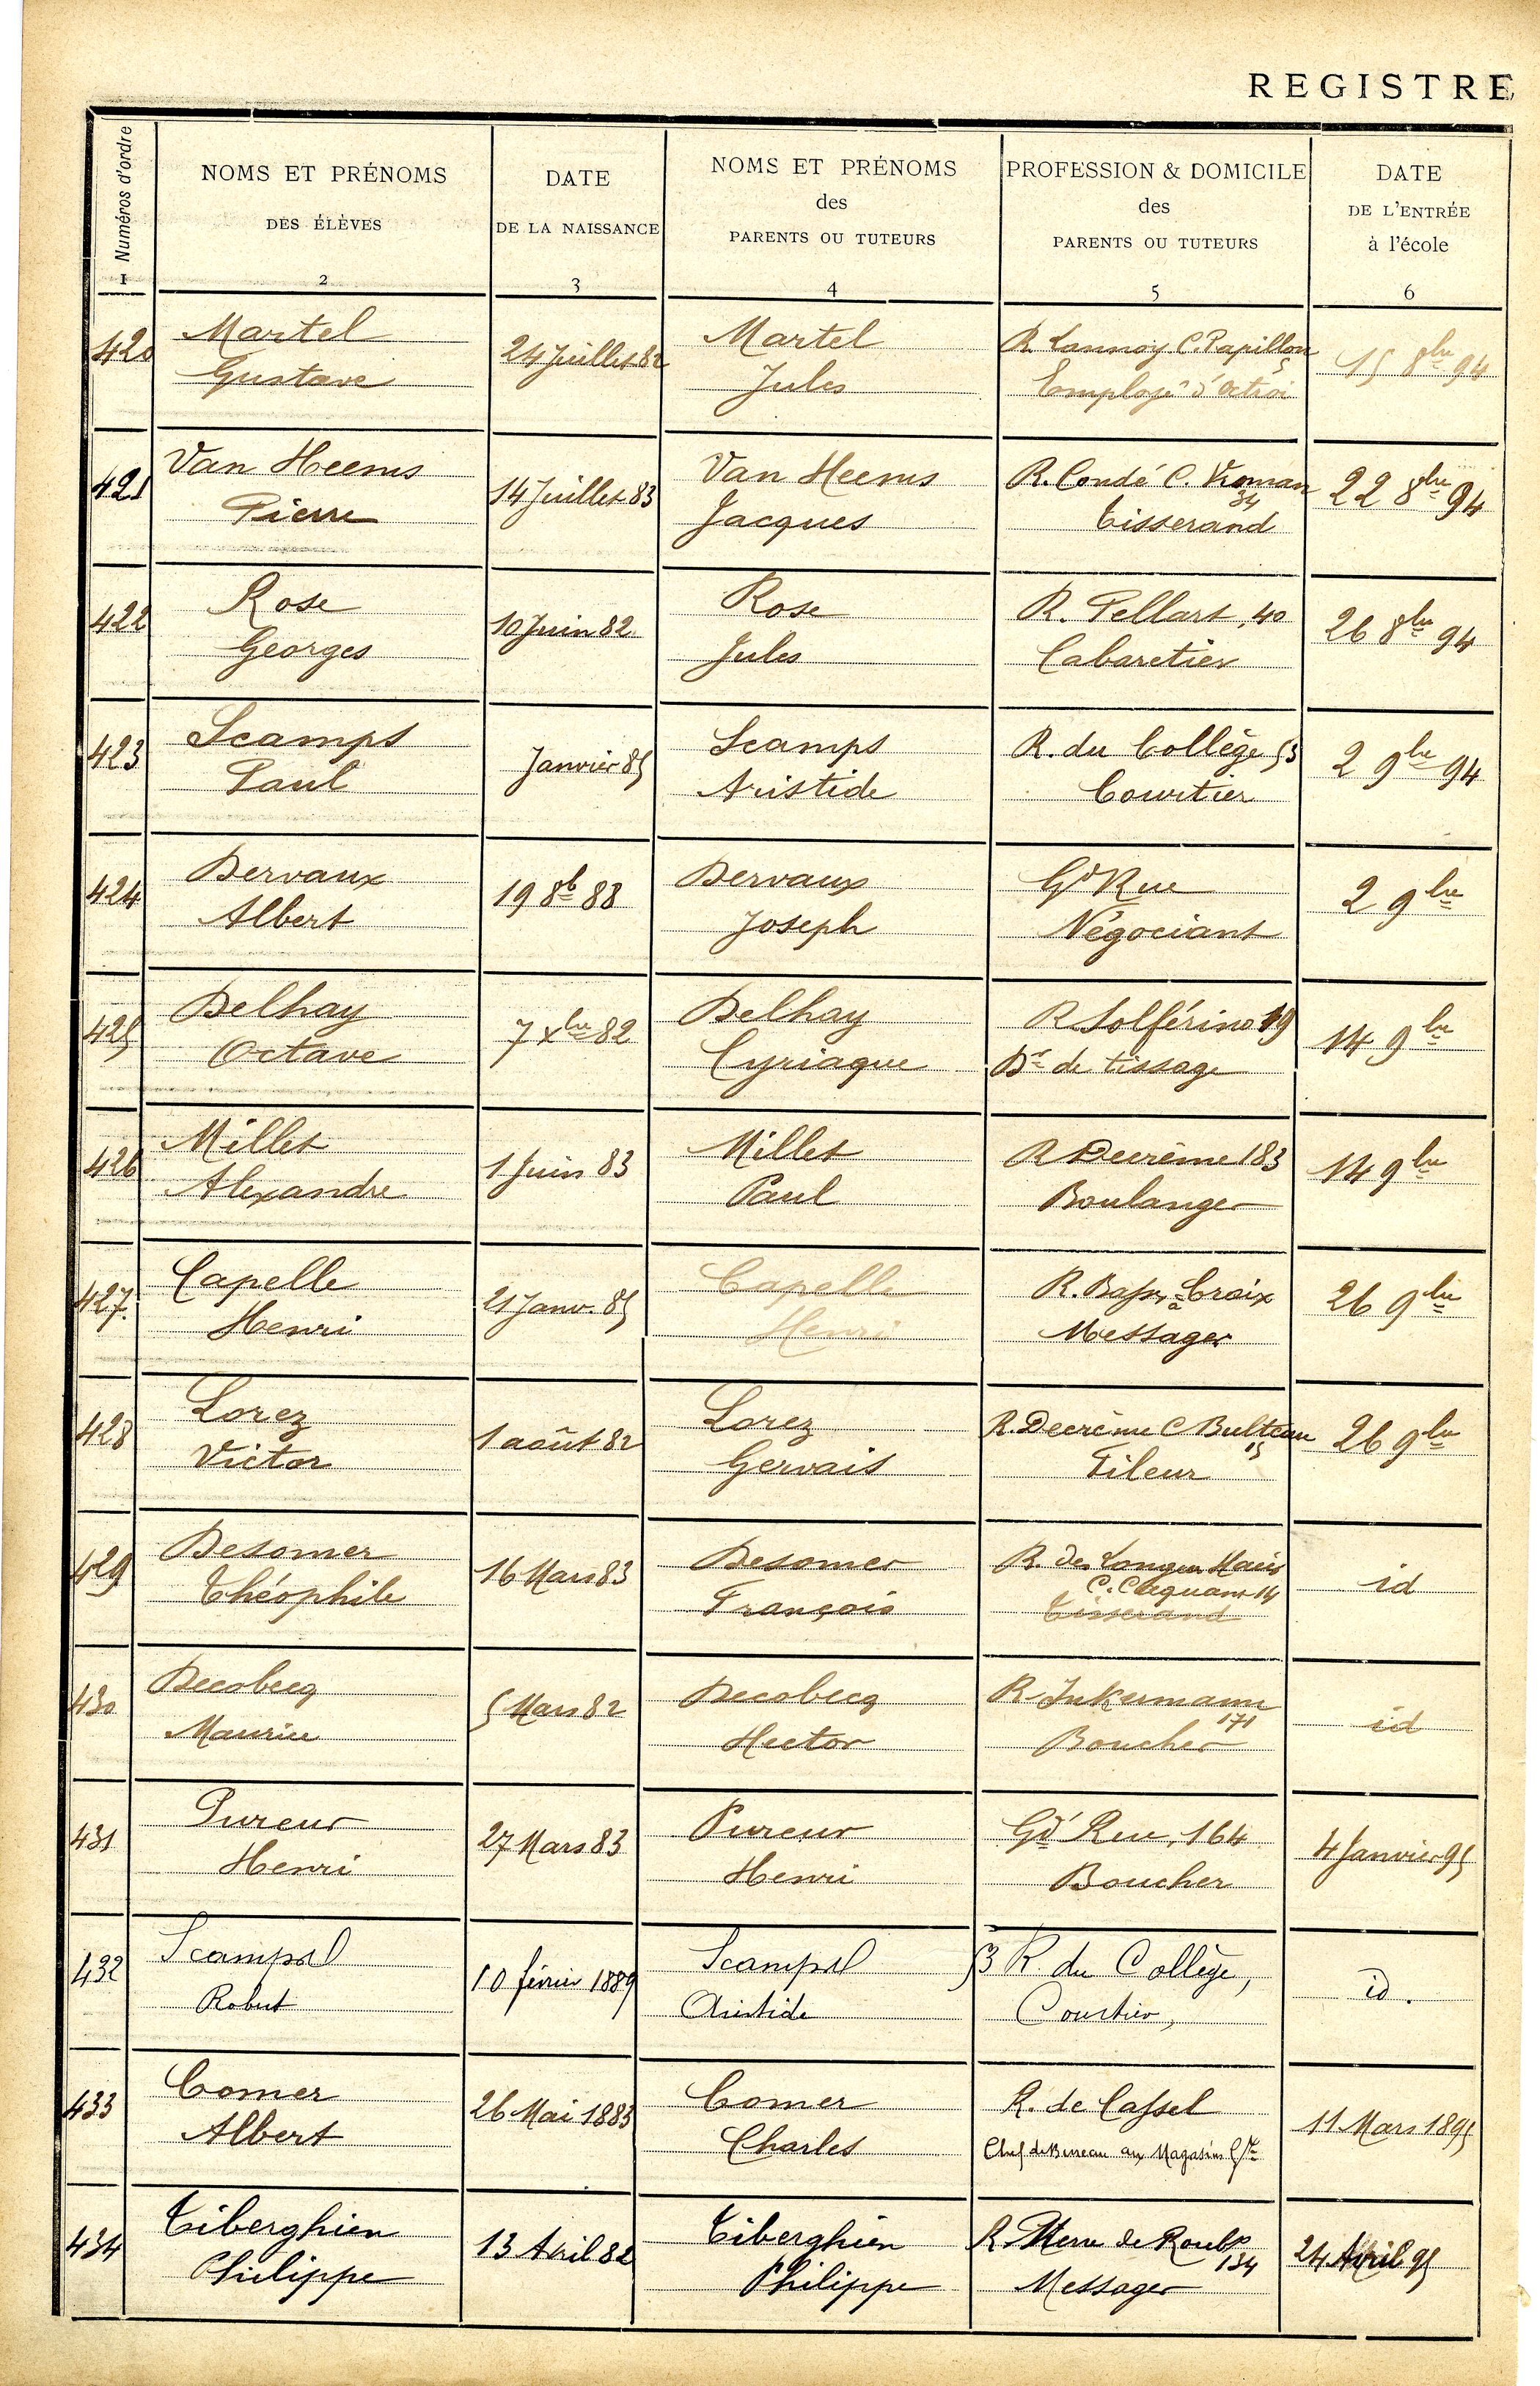 REGISTRE
Numéros d'ordre
NOMS ET PRÉNOMS
DES ÉLÈVES
DATE
DE LA NAISSANCE
NOMS ET PRÉNOMS
des
PARENTS OU TUTEURS
PROFESSION & DOMICILE
des
PARENTS OU TUTEURS
DATE
DE L'ENTRÉE
à l'école
1 2 3 4 5 6
420
Martel
Gustave
24 Juillet 82
Martel
Jules
R. Lannoy C. Papillon
5
Employé d'octroi
15 8bre 94
421
Van Heems
Pierre
14 Juillet 83
Van Heems
Jacques
R. Condé C. Vroman
34
Tisserand
22 8bre 94
422
Rose
Georges
10 Juin 82
Rose
Jules
R. Pellart, 40
Cabaretier
26 8bre 94
423
Scamps
Paul
Janvier 85
Scamps
Aristide
R. du Collège 53
Courtier
2 9bre 94
424
Dervaux
Albert
19 8b 88
Dervaux
Joseph
Gd Rue
Négociant
2 9bre
425
Delhay
Octave
7 xbre 82
Delhay
Cyriaque
R Solférino 19
Dr de tissage
14 9bre
426
Millet
Alexandre
1 Juin 83
Millet
Paul
R Decrême 183
Boulanger
14 9bre
427.
Capelle
Henri
21 Janv. 85
Capelle
Henri
R. à Croix
Messager
26 9bre
428
Lorez
Victor
1 août 82
Lorez
Gervais
R. Decrême C Bulteau
15
Fileur
26 9bre
429
Desomer
Théophile
16 Mars 83
Desomer
François
R. des Longues Haies
C. 14
Tisserand
id
430
Decobecq
Maurice
5 Mars 82
Decobecq
Hector
R. Inkermann
171
Boucher
id
431
Pureur
Henri
27 Mars 83
Pureur
Henri
Gd Rue, 164
Boucher
4 Janvier 95
432
Robert
10 février 1889
Aristide
53 R. du Collège,
Courtier,
id.
433
Comer
Albert
26 Mai 1883
Comer
Charles
R. de Cassel
Chef de Bureau aux Magasins
11 Mars 1895
434
Tiberghien
Philippe
13 Avril 82
Tiberghien
Philippe
R. Pierre de Roubx
134
Messager
24 Avril 95